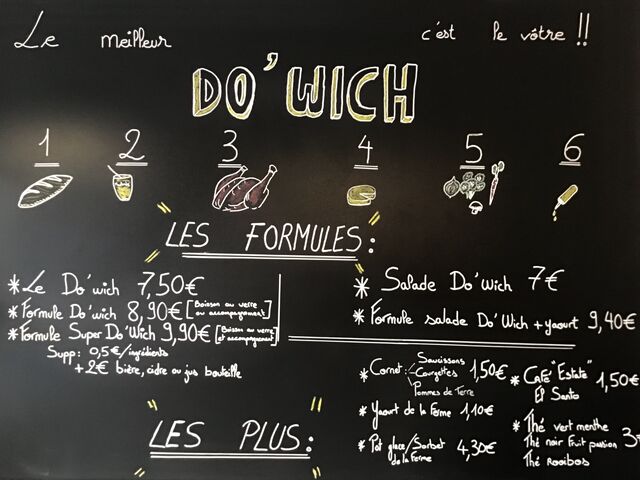 Le meilleur c'est le vôtre !!
DO'WICH
1 2 3 4 5 6
LES FORMULES :
* Le Do'wich 7,50€
* Formule Do'wich 8,90€ [Boisson au verre
ou accompagnement]
* Formule Super Do'Wich 9,90€ [Boisson au verre
et accompagnement]
Supp : 0,5€/ingrédients
+2€ bière, cidre ou jus bouteille
* Salade Do'Wich 7€
* Formule salade Do'Wich + yaourt 9,40€
LES PLUS :
* Cornet : Saucissons
Courgettes 1,50€
Pommes de Terre
* Yaourt de la Ferme 1,10€
* Pot glace/Sorbet
de la Ferme 4,30€
* CAFÉ "Estate" 1,50€
El Santo
* Thé vert menthe
Thé noir Fruit passion 3
Thé Rooibos